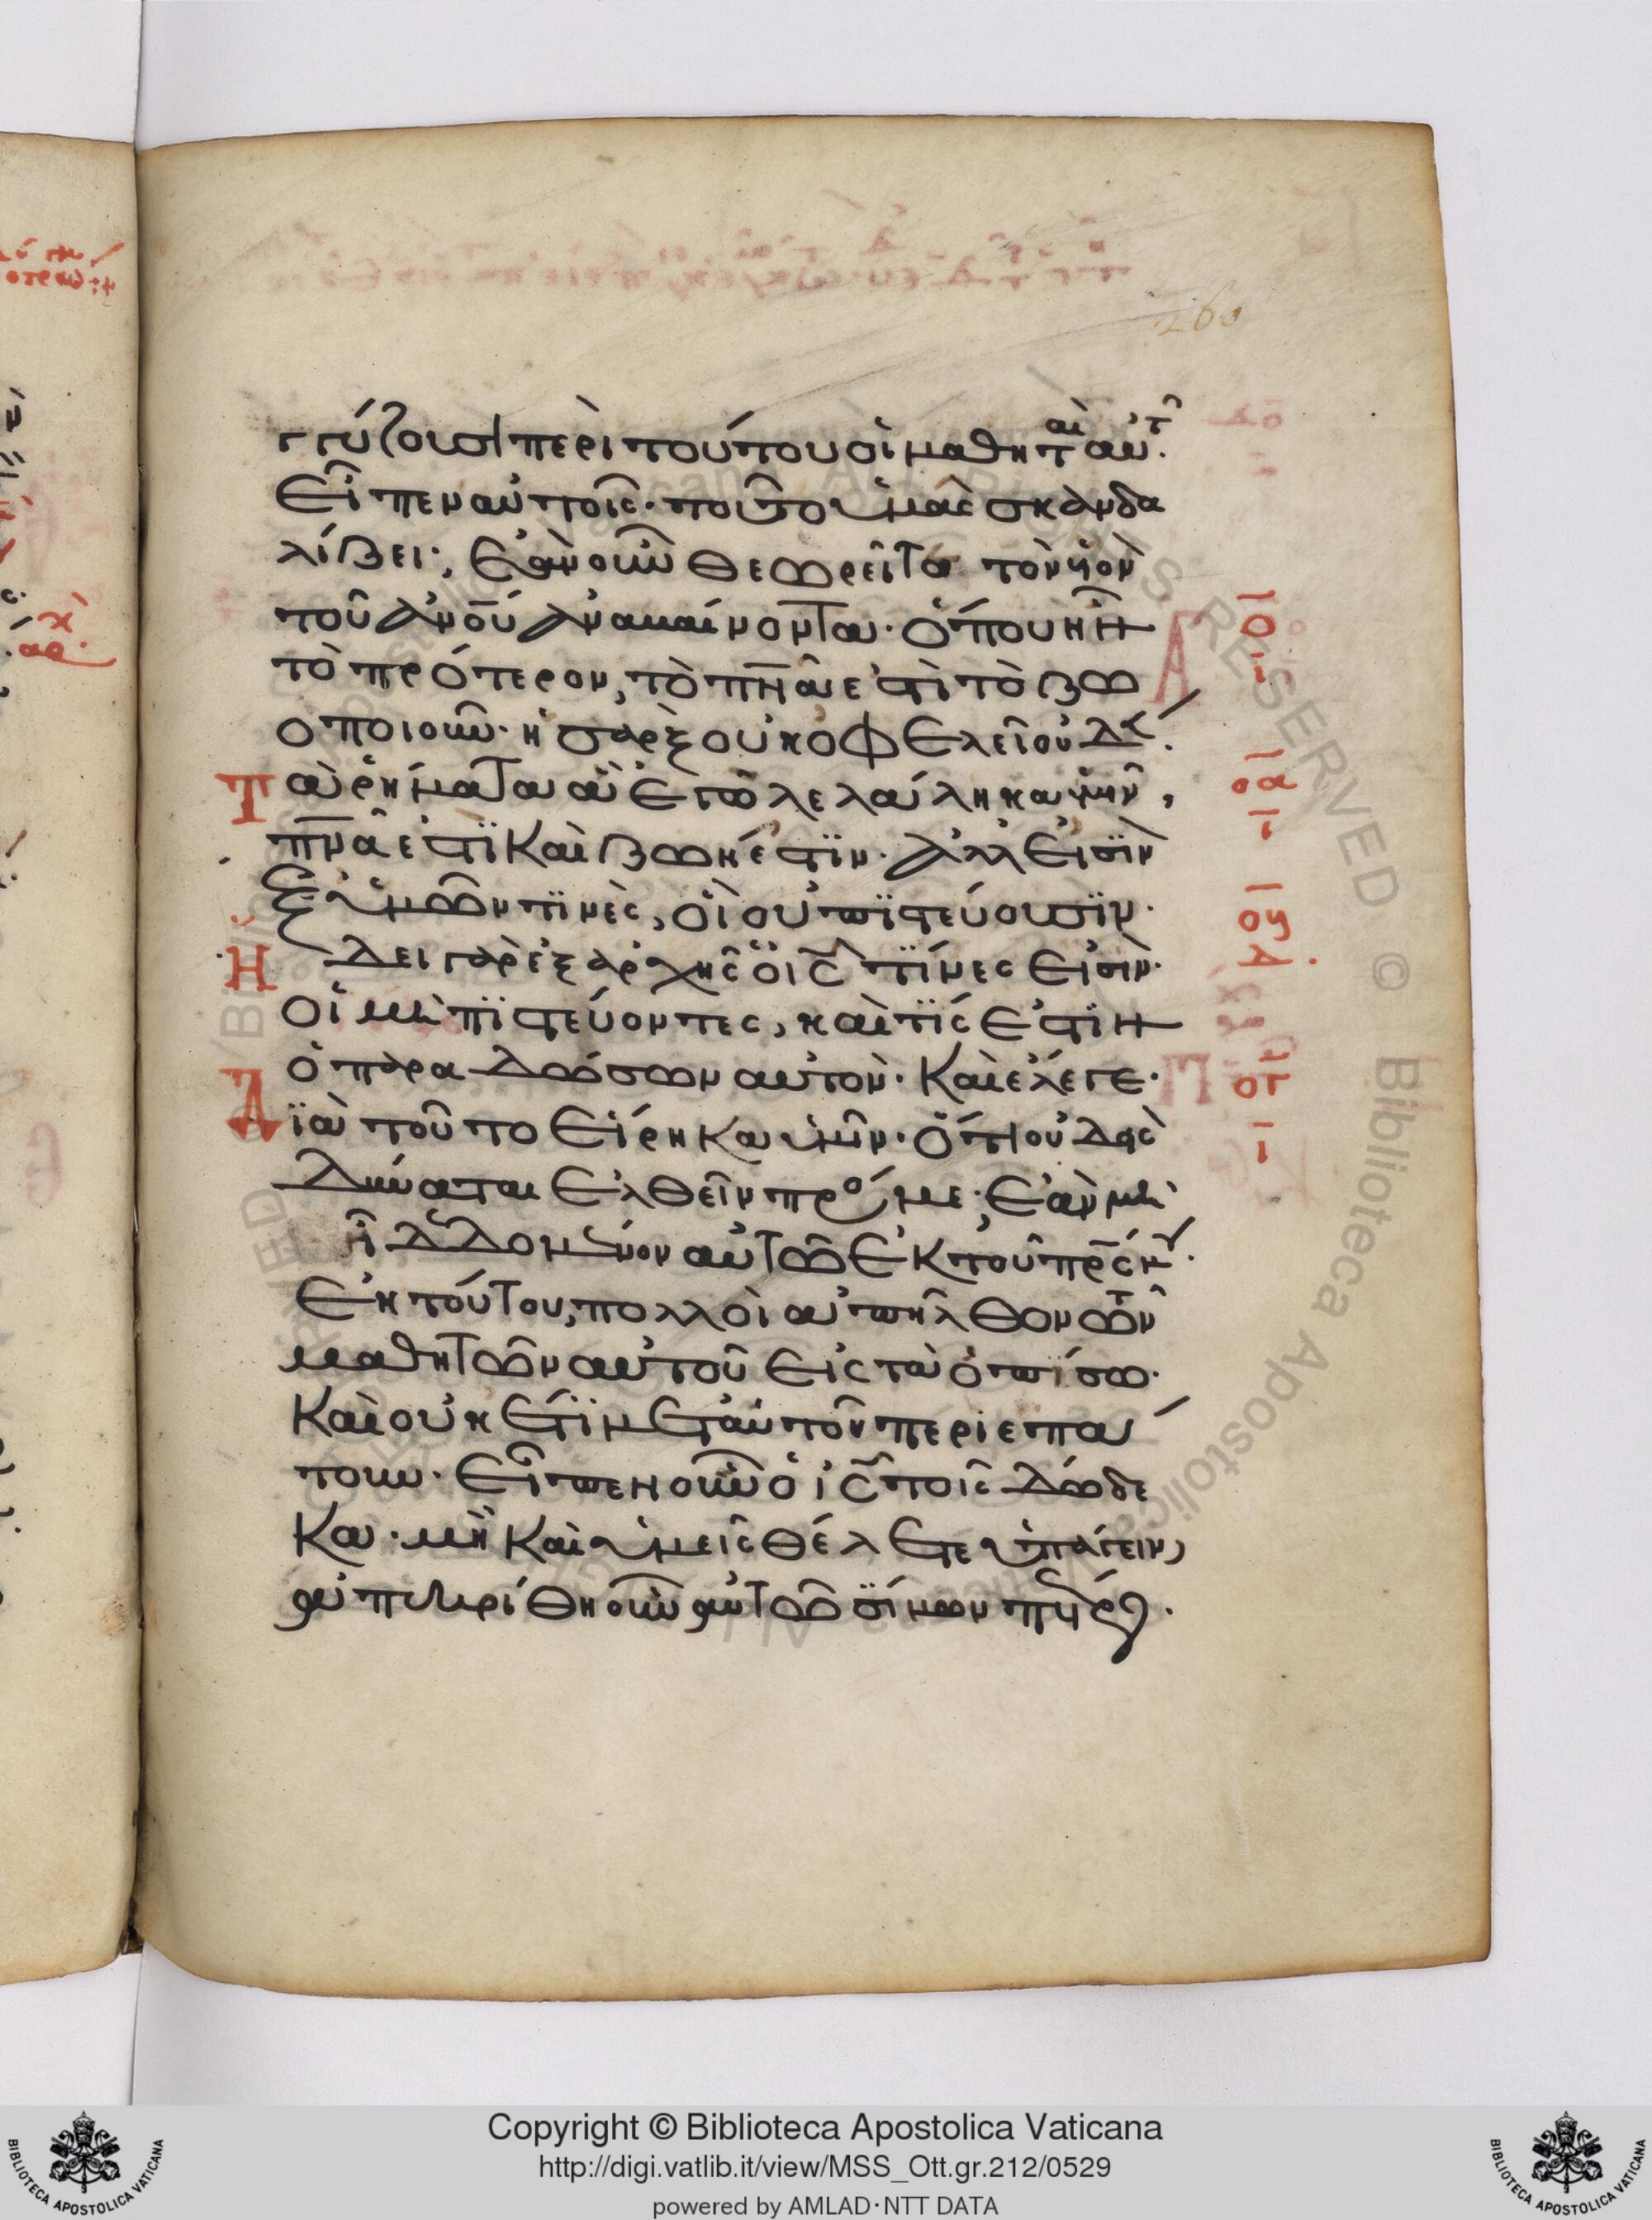 260
γγύζουσι περὶ τούτου οἱ μαθηταὶ αὐτ.
Εἶπεν αὐτοῖς· τοῦτο ὑμᾶς σκανδα
λίζει; Ἐὰν οὖν θεωρεῖτε τὸν υἱὸν
τοῦ ἀνου ἀναβαίνοντα· ὅπου ἦν
τὸ πρότερον, τὸ πνα ἐστὶ τὸ ζω
οποιοῦν· ἡ σὰρξ οὐκ ὀφελεῖ οὐδέν.
Τὰ ῥήματα ἃ ἐγὼ λελάληκα ὑμῖν,
πνα ἐστϊ Καὶ ζωή ἐστϊν· ἀλλ εἰσὶν
ἐξ ὑμῶν τϊνὲς, οἳ οὐ πϊστεύουσϊν·
Ηδει γὰρ ἐξ ἀρχῆς ὁ ις τϊνες εἰσὶν·
οἱ μὴ πϊστεύοντες, καὶ τϊς ἐστϊν
ὁ παραδώσων αὐτὸν· Καὶ ἔλεγε·
Δϊὰ τοῦτο εἴρηκα ὑμῖν· ὅτι οὐδεὶς
δύναται ἐλθεῖν πρός με· ἐὰν μὴ
ἦ δεδομένον αὐτῶ ἐκ τοῦ πρς μου.
Ἐκ τούτου, πολλοὶ ἀπῆλθον τῶν
μαθητῶν αὐτοῦ εἰς τὰ ὀπϊσω·
Καὶ οὐκ έτϊ μετ αὐτοῦ περιεπά
τουν· Εἶπεν οὖν ὁ ις τοῖς δώδε
Κα· μὴ Καὶ ὑμεῖς θέλετε ὑπάγειν;
ἀπεκρίθη οὖν αὐτῶ σϊμων πέτρος·
ιο
ι
ι
οα
ι
ι
ογ
α
ι
οτ
ι
Copyright © Biblioteca Apostolica Vaticana
http://digi.vatlib.it/view/MSS_Ott.gr.212/0529
powered by AMLAD·NTT DATA
BIBLIOTECA APOSTOLICA VATICANA
BIBLIOTECA APOSTOLICA VATICANA